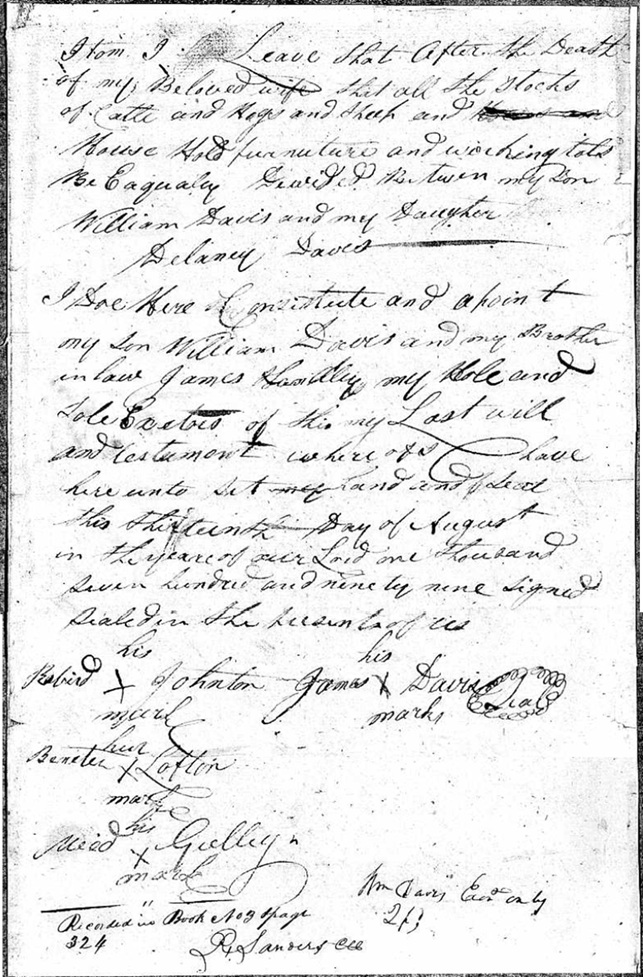 Itom I Leave that After the Death
of my Beloved wife that all the Stocks
of Catte and Hogs and Sheep and
House Hold furnuture and working tols
Be Eaqualey Devided Betwen my Son
William Davis and my Daugher
Delaney Daves
I Doe Here Constitute and apoint
my Son William Davis and my Brother
in law James Handley my Hole and
Sole Exetors of this my Last will
and testament where of I have
here unto Set my hand and Seal
this thirteenth Day of August
in the yeare of our Lord one thousand
seven hundred and ninety nine signed
Sealed in the presents of us
his his
X Johnton James X Davis Seal
mark marks
her
X Lofton
mark
his
Gulley
X
mark
Wm Davis Exor only
Recorded in Book No 3 & page
324
R Sanders CC